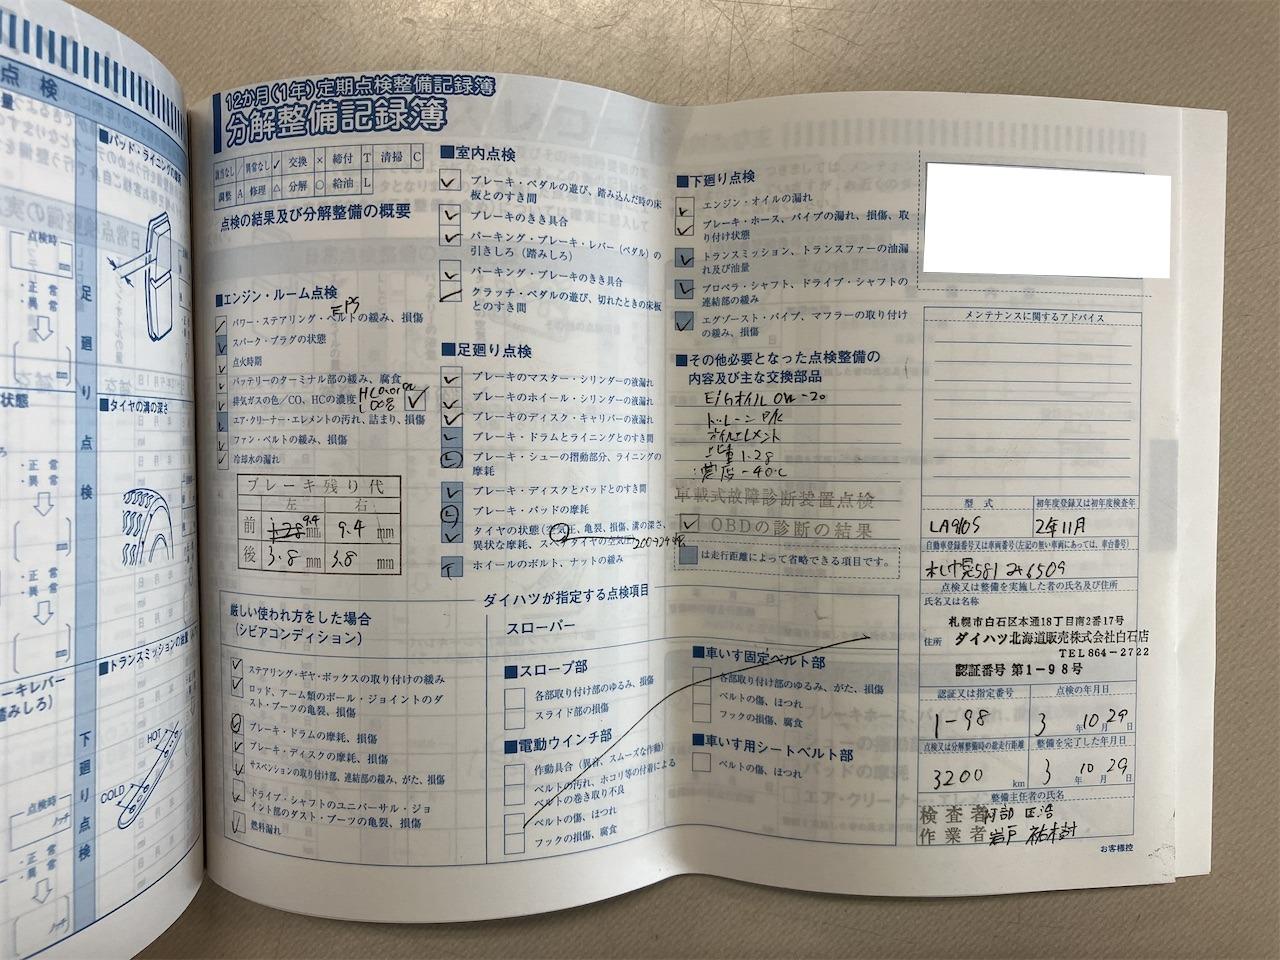 点検
■パッド・ライニングの摩耗
点検時
・正常
・異常
足廻り点検
■タイヤの溝の深さ
・正常
・異常
■トランスミッションの油量
HOT
COLD
点検時
・正常
・異常
下廻り点検
12か月(1年)定期点検整備記録簿
分解整備記録簿
該当なし / 異常なし ✓ 交換 × 締付 T 清掃 C
調整 A 修理 △ 分解 ○ 給油 L
点検の結果及び分解整備の概要
■エンジン・ルーム点検
EPS
パワー・ステアリング・ベルトの緩み、損傷
スパーク・プラグの状態
点火時期
バッテリーのターミナル部の緩み、腐食
排気ガスの色/CO、HCの濃度
エア・クリーナー・エレメントの汚れ、詰まり、損傷
ファン・ベルトの緩み、損傷
冷却水の漏れ
ブレーキ残り代
左 右
前 9.4 mm 9.4 mm
後 3.8 mm 3.8 mm
■室内点検
ブレーキ・ペダルの遊び、踏み込んだ時の床
板とのすき間
ブレーキのきき具合
パーキング・ブレーキ・レバー(ペダル)の
引きしろ(踏みしろ)
パーキング・ブレーキのきき具合
クラッチ・ペダルの遊び、切れたときの床板
とのすき間
■足廻り点検
ブレーキのマスター・シリンダーの液漏れ
ブレーキのホイール・シリンダーの液漏れ
ブレーキのディスク・キャリパーの液漏れ
ブレーキ・ドラムとライニングとのすき間
ブレーキ・シューの摺動部分、ライニングの
摩耗
ブレーキ・ディスクとパッドとのすき間
ブレーキ・パッドの摩耗
タイヤの状態(空気圧、亀裂、損傷、溝の深さ、
異状な摩耗、スペアタイヤの空気圧)
ホイールのボルト、ナットの緩み
■下廻り点検
エンジン・オイルの漏れ
ブレーキ・ホース、パイプの漏れ、損傷、取
り付け状態
トランスミッション、トランスファーの油漏
れ及び油量
プロペラ・シャフト、ドライブ・シャフトの
連結部の緩み
エグゾースト・パイプ、マフラーの取り付け
の緩み、損傷
■その他必要となった点検整備の
内容及び主な交換部品
E/Gオイル 0W-20
ドレーンP/K
オイルエレメント
比重1.28
濃度-40℃
車載式故障診断装置点検
✓ OBDの診断の結果
は走行距離によって省略できる項目です。
メンテナンスに関するアドバイス
型式 初年度登録又は初年度検査年
LA910S 2年11月
自動車登録番号又は車両番号(左記の無い車両にあっては、車台番号)
札幌581 2 6509
点検又は整備を実施した者の氏名及び住所
氏名又は名称
札幌市白石区本通18丁目南2番17号
住所 ダイハツ北海道販売株式会社白石店
TEL864-2722
認証番号 第1-98号
認証又は指定番号 点検の年月日
1-98 3年10月29日
点検又は分解整備時の総走行距離 整備を完了した年月日
3200 km 3年10月29日
整備主任者の氏名
検査者 阿部
作業者 岩戸 祐樹
お客様控
ダイハツが指定する点検項目
厳しい使われ方をした場合
(シビアコンディション)
ステアリング・ギヤ・ボックスの取り付けの緩み
ロッド、アーム類のボール・ジョイントのダ
スト・ブーツの亀裂、損傷
ブレーキ・ドラムの摩耗、損傷
ブレーキ・ディスクの摩耗、損傷
サスペンションの取り付け部、連結部の緩み、がた、損傷
ドライブ・シャフトのユニバーサル・ジョ
イント部のダスト・ブーツの亀裂、損傷
燃料漏れ
スローパー
■スロープ部
各部取り付け部のゆるみ、損傷
スライド部の損傷
■電動ウインチ部
作動具合(異音、スムーズな作動)
ベルトの汚れ、ホコリ等の付着による
ベルトの巻き取り不良
ベルトの傷、ほつれ
フックの損傷、腐食
■車いす固定ベルト部
各部取り付け部のゆるみ、がた、損傷
ベルトの傷、ほつれ
フックの損傷、腐食
■車いす用シートベルト部
ベルトの傷、ほつれ